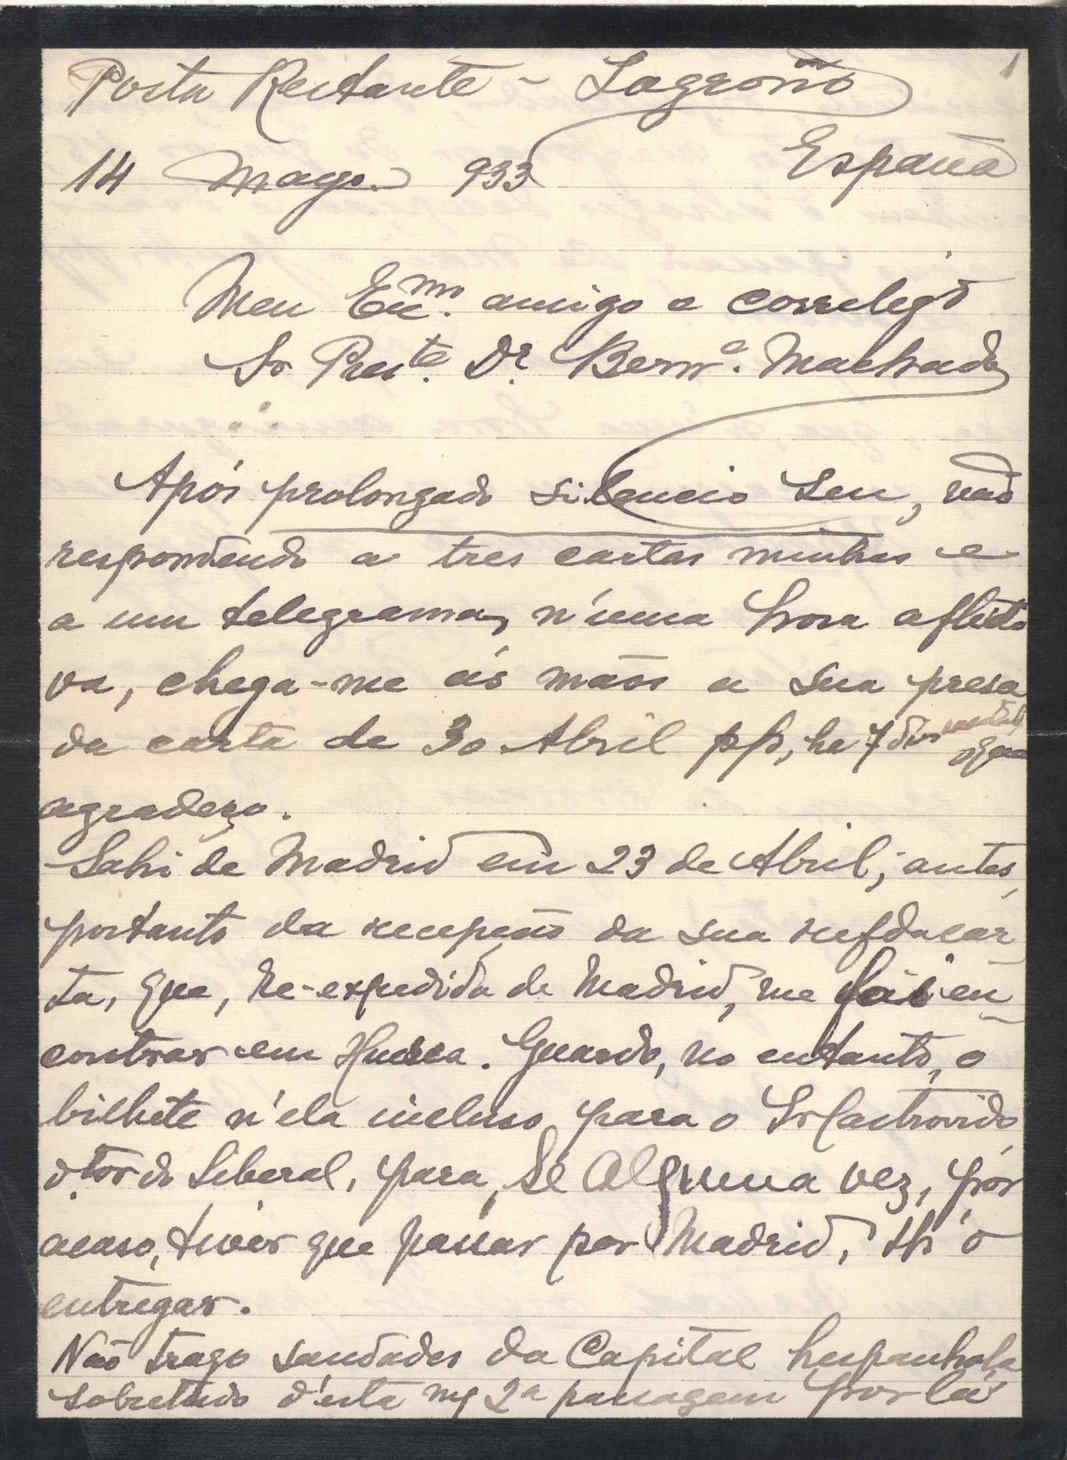 1
Posta Restante - Logroño
España
14 Mayo 933
Meu Exmo. amigo e correlegº
Sr Preste. Dr. Bernº. Machado
Após prolongado silencio seu, não
respondendo a tres cartas minhas e
a um telegrama, n'uma hora aflicti
va, chega-me ás mãos a sua presa
da carta de 30 Abril pp, ha 7 dias que
agradeço.
Sahi de Madrid em 23 de Abril; antes,
portanto da recepção da sua refda car
ta, que, re-expedida de Madrid, me foi en
contrar em Huesca. Guardo, no entanto, o
bilhete n'ela incluso para o Sr Castrovido
dtor do Liberal, para, se alguma vez, por
acaso, tiver que passar por Madrid, lh'o
entregar.
Não trago saudades da Capital hespanhola
sobretudo d'esta mª 2ª passagem por lá